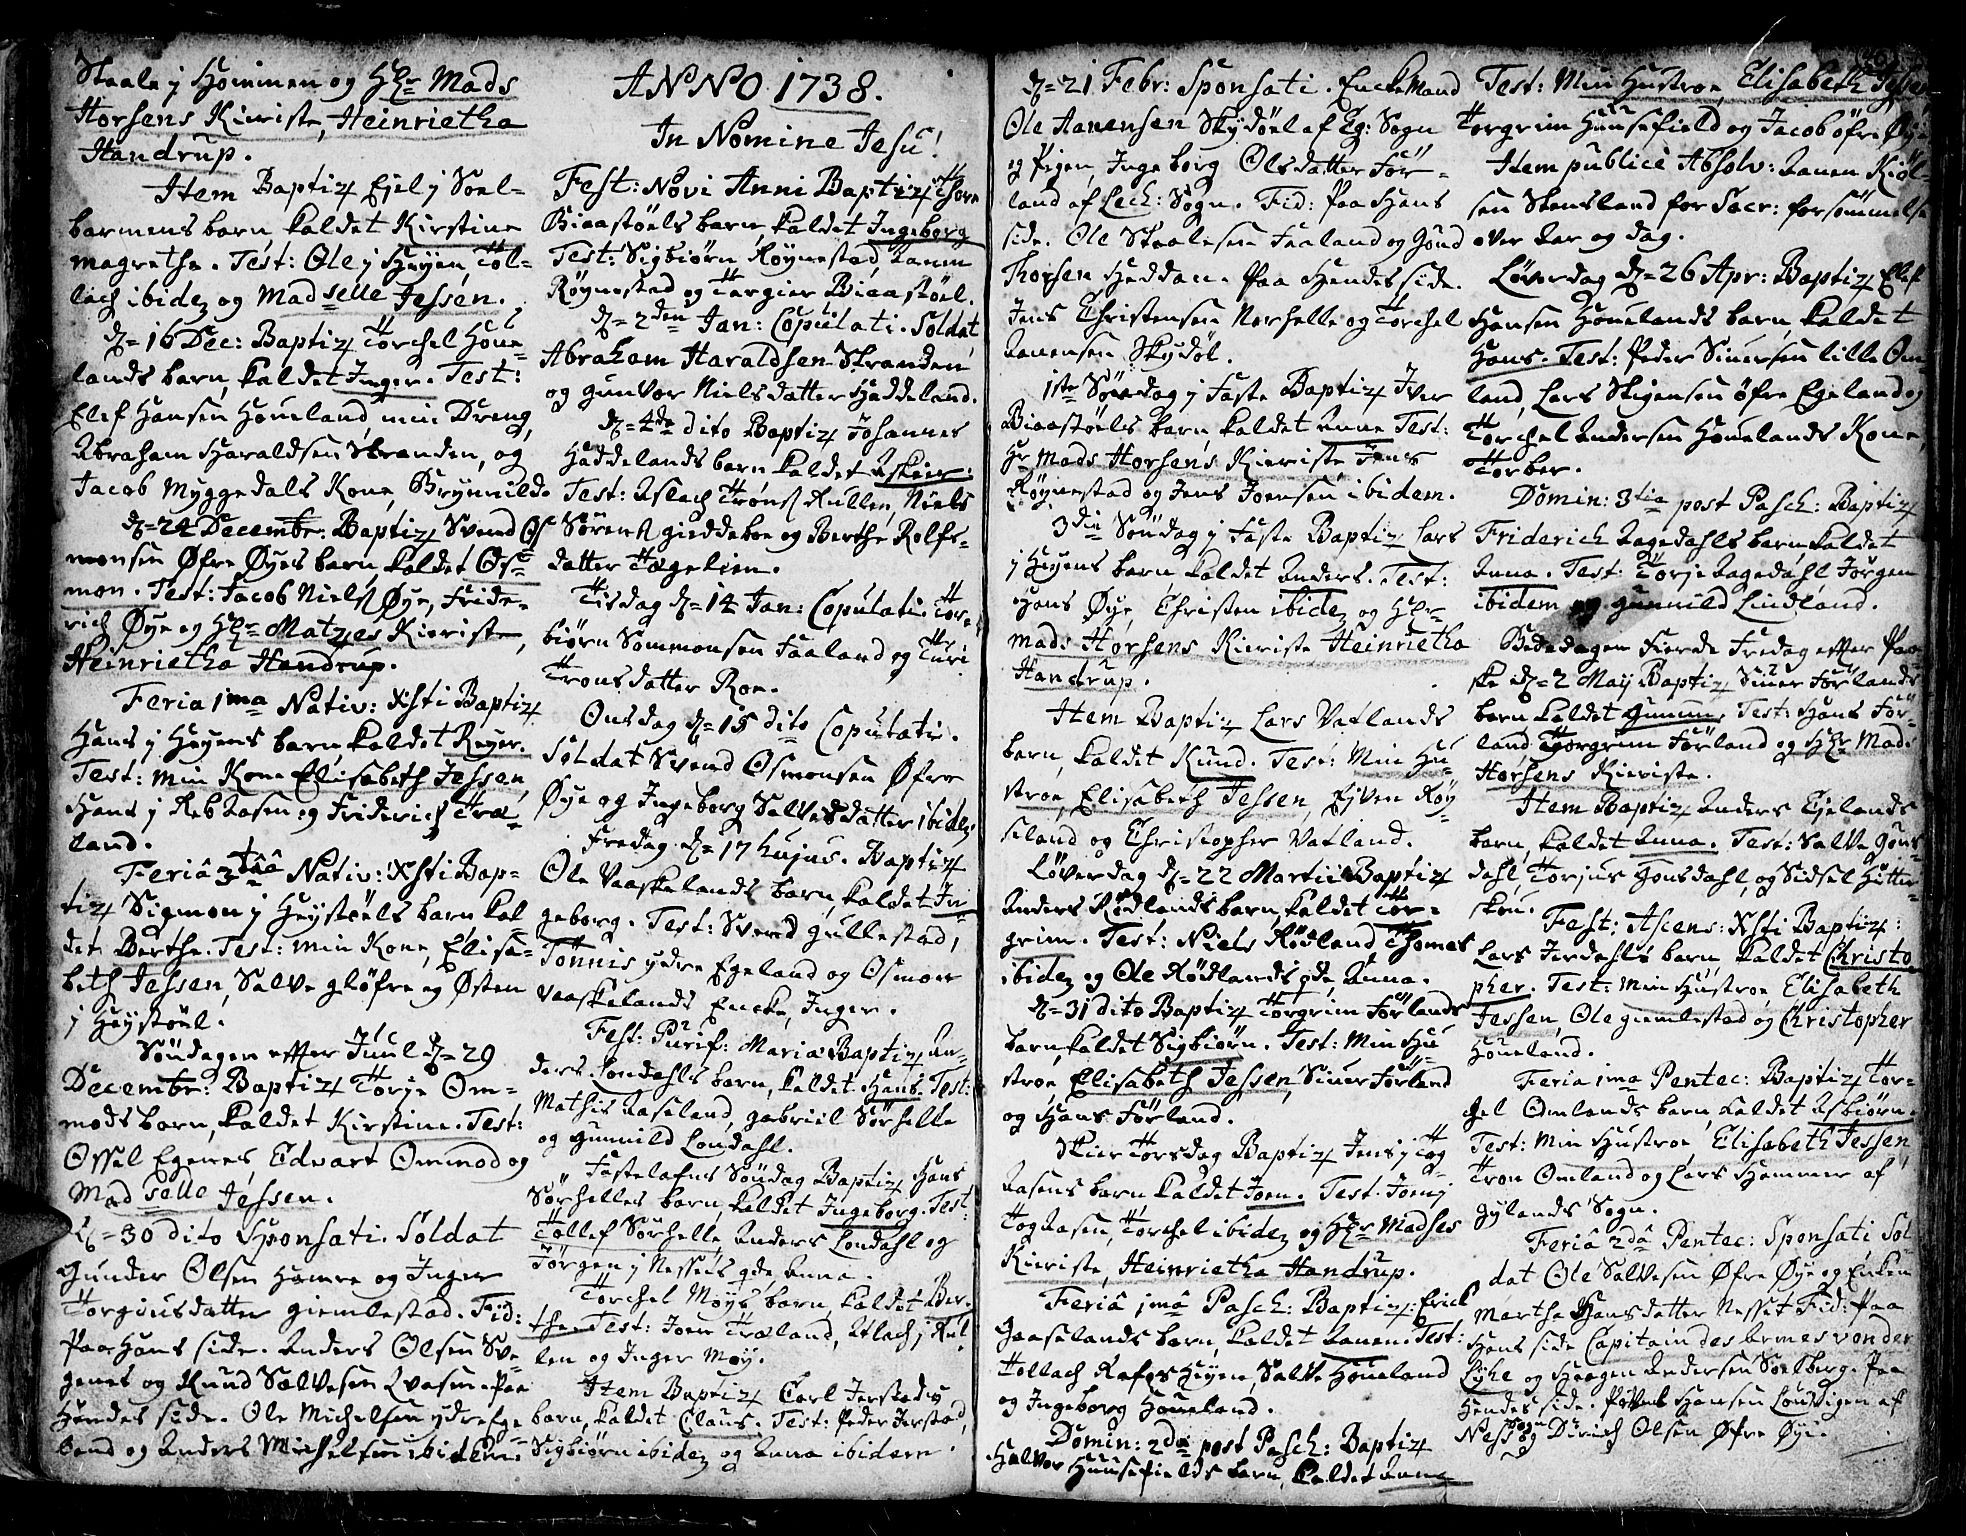 Staale j Hommen og Hr Mads
Horsens Kieriste, Heinrietha
Handrup.
Item Baptiz Ejel j Soel-
barmens barn kaldet Kirstine
magrethe. Test: Ole j Heyen, Tol-
lach ibidez og Madselle Jessen.
D= 16 Dec: Baptiz Torchel Houe-
lands barn, kaldet Inger. Test:
Elef Hansen Houeland, min Dreng,
Abraham Haraldsen Stranden, og
Jacob Myggedals Kone, Brynnild.
D= 24 December: Baptiz Svend Os-
monsen Øfre Øyes barn kaldet Os-
mon. Test: Jacob Niels Øye, Fride-
rich Øye og Hr Matzes Kieriste,
Heinrietha Handrup.
Feria 1ma Nativ: Xsti Baptiz
Hans j Heyens barn kaldet Reyer.
Test: Min Kone Elisabeth Jessen,
Hans j Rebaasen og Friderich Træ-
land.
Feriâ 3tiâ Nativ: Xsti Bap-
tiz Sigmon j Heystöels barn kal
det Berthe. Test: Min Kone, Elisa-
beth Jessen, Salve gløfre og Østen
j Heystöel.
Søndagen effter Juul D= 29
December: Baptiz Torje Om-
mods barn, kaldet Kirstine. Test:
Ossel Egenes, Edvart Ommod og
Madselle Jessen.
D= 30 dito Sponsati. Soldat
Gunder Olsen Hamre og Inger
Torgiusdatter giemlestad. Fid:
Paa Hans side. Anders Olsen Eve-
genes og Knud Salvesen Aasen. Paa
Hendes side. Ole Michelsen ydre Ege-
land og Anders Michelsen ibidem.
ANNO 1738.
In Nomine Jesu!
Fest: Novi Anni Baptiz Thore
Biaastöels barn, kaldet Ingeborg
Test: Sigbiørn Røynestad, Aanen
Røynestad og Torgier Biaastöel.
D= 2den Jan: Coputati. Soldat
Abraham Haraldsen Stranden
og gunvor Nielsdatter Haddeland.
D= 4de dito Baptiz Johannes
Haddelands barn kaldet Askier.
Test: Aslach Trons Kullen, Niels
Sörens gieddeboe og Berthe Rolfs-
datter Hægelien.
Tisdag D= 14 Jan: Coputati. Tor-
biørn Sommonsen Faaland og Turi
Tronsdatter Roe.
Onsdag D= 15 dito Coputati.
Soldat Svend Osmonsen Øfre
Øye og Ingeborg Salvesdatter ibidez
Fredag D= 17 hujus. Baptiz
Ole Vaaskelands barn, kaldet In-
geborg. Test: Svend gullestad,
Tönnis ydre Egeland og Osmon
Vaaskelands Encke, Inger.
Fest: Purif: Mariæ Baptiz An-
ders Londahls barn, kaldet Hans. Test:
Mathis Aaseland, gabriel Sörhelle
og gunnild Londahl.
Fastelafns Søndag Baptiz Hans
Sørhelles barn, kaldet Ingeborg. Test:
Tollef Sørhelle, Anders Londahl og
Jörgen j Nessets qde, Anna.
Torchel Moÿs barn, kaldet Ber-
the. Test: Joen Træland, Aslach j Kul
len og Inger Moÿ.
Item Baptiz Carl Jerstads
barn, kaldet Claus. Test: Peder Jerstad,
Sigbiörn ibidez og Anna ibidem.
D= 21 Febr: Sponsati. Enckemand
Ole Aanensen Skydöel af Eg: Sogn
og Pigen, Ingeborg Olsdatter För-
land af Lech: Sogn. Fid: Paa Hans
side. Ole Staalesen Faaland og Gund
Thorsen Heddan. Paa Hendes side.
Jens Christensen Norhelle og Torchel
Aanensen Skydöl.
1ste Söndag j Faste Baptiz Iver
Biaastöels barn, kaldet Anne Test:
Hr Mads Horsens Kieriste Jens
Røynestad og Jens Joensen ibidem.
3die Søndag j Faste Baptiz Lars
j Heyens barn kaldet Anders. Test:
Hans Øye, Christen ibidez og Hr
Mads Horsens Kieriste Heinrietha
Handrup.
Item Baptiz Lars Vatlands
barn, kaldet Knud. Test: Min Hu-
stroe, Elisabeth Jessen, Ejven Røy-
seland og Christopher Vatland.
Løverdag D= 22 Martii Baptiz
Anders Rødlands barn, kaldet Tor-
grim. Test: Niels Rødland Thomes
ibidez og Ole Rødlands qde, Anna.
D= 31 dito Baptiz Torgrim Förlands
barn, kaldet Sigbiørn. Test: Min Hu
stroe, Elisabeth Jessen, Siuer Förland
og Hans Förland.
Skier Torsdag Baptiz Jens j Tog
Aasens barn kaldet Joen. Test: Joen j
TogAasen, Torchel ibidez og Hr Madses
Kieriste, Heinrietha Handrup.
Feriâ 1mâ Pasch: Baptiz: Erick
Gaaselands barn, kaldet Aanen. Test:
Tollach Rafos Heyen, Salve Houeland
og Ingeborg Houeland.
Domin: 2da post Pasch: Baptiz
Halvor Huusefields barn, kaldet Anna
Test: Min Hustroe, Elisabeth Jessen
Torgrim Huusefield og Jacob öfre Øye
Item publicè Absolv: Aanen Kiöl-
sen Skensland for Sacr: forsömmelse
over Aar og dag.
Løverdag D= 26 Apr: Baptiz Elef
Hansen Houelands barn, kaldet
Hans. Test: Peder Siuersen lille Om-
land, Lars Stigensen öfre Egeland og
Torchel Andersen Houelands Kone,
Torber.
Domin: 3tia post Pasch: Baptiz
Friderich Aagedahls barn kaldet
Anna. Test: Torje Aagedahl Jörgen
ibidem og gunnild Lindland.
Bededagen Fierde Fredag effter Paa-
ske D= 2 Maij Baptiz Siuer Förlands
barn kaldet Test: Hans För-
land, Torgrim Förland og Hr Mads
Horsens Kieriste.
Item Baptiz Anders Ejelands
barn, kaldet Anna. Test: Salve Gons-
dahl, Torjus Gonsdahl, og Sidsel Hitter
skou.
Fest: Ascens: Xsti Baptiz:
Lars Jerdahls barn, kaldet Christo
pher. Test: Min Hustroe Elisabeth
Jessen, Ole giemlestad og Christopher
Houeland.
Feria 1ma Pentec: Baptiz Tor-
gel Omlands barn, kaldet Asbiørn.
Test: Min Hustroe, Elisabeth Jessen
Tron Omland og Lars Hammer af
gylands Sogn.
Feriâ 2dâ Pentec: Sponsati Sol
dat Ole Salvesen Øfre Øye og Enken
Marthe Hansdatter Nesset Fid: Paa
Hans side Capitain des Armes von der
Lÿhe og Haagen Andersen Soelberg. Paa
Hendes side. Hansen Londigen af
Ness Sogn og Dirich Olsen Øfre Øye.